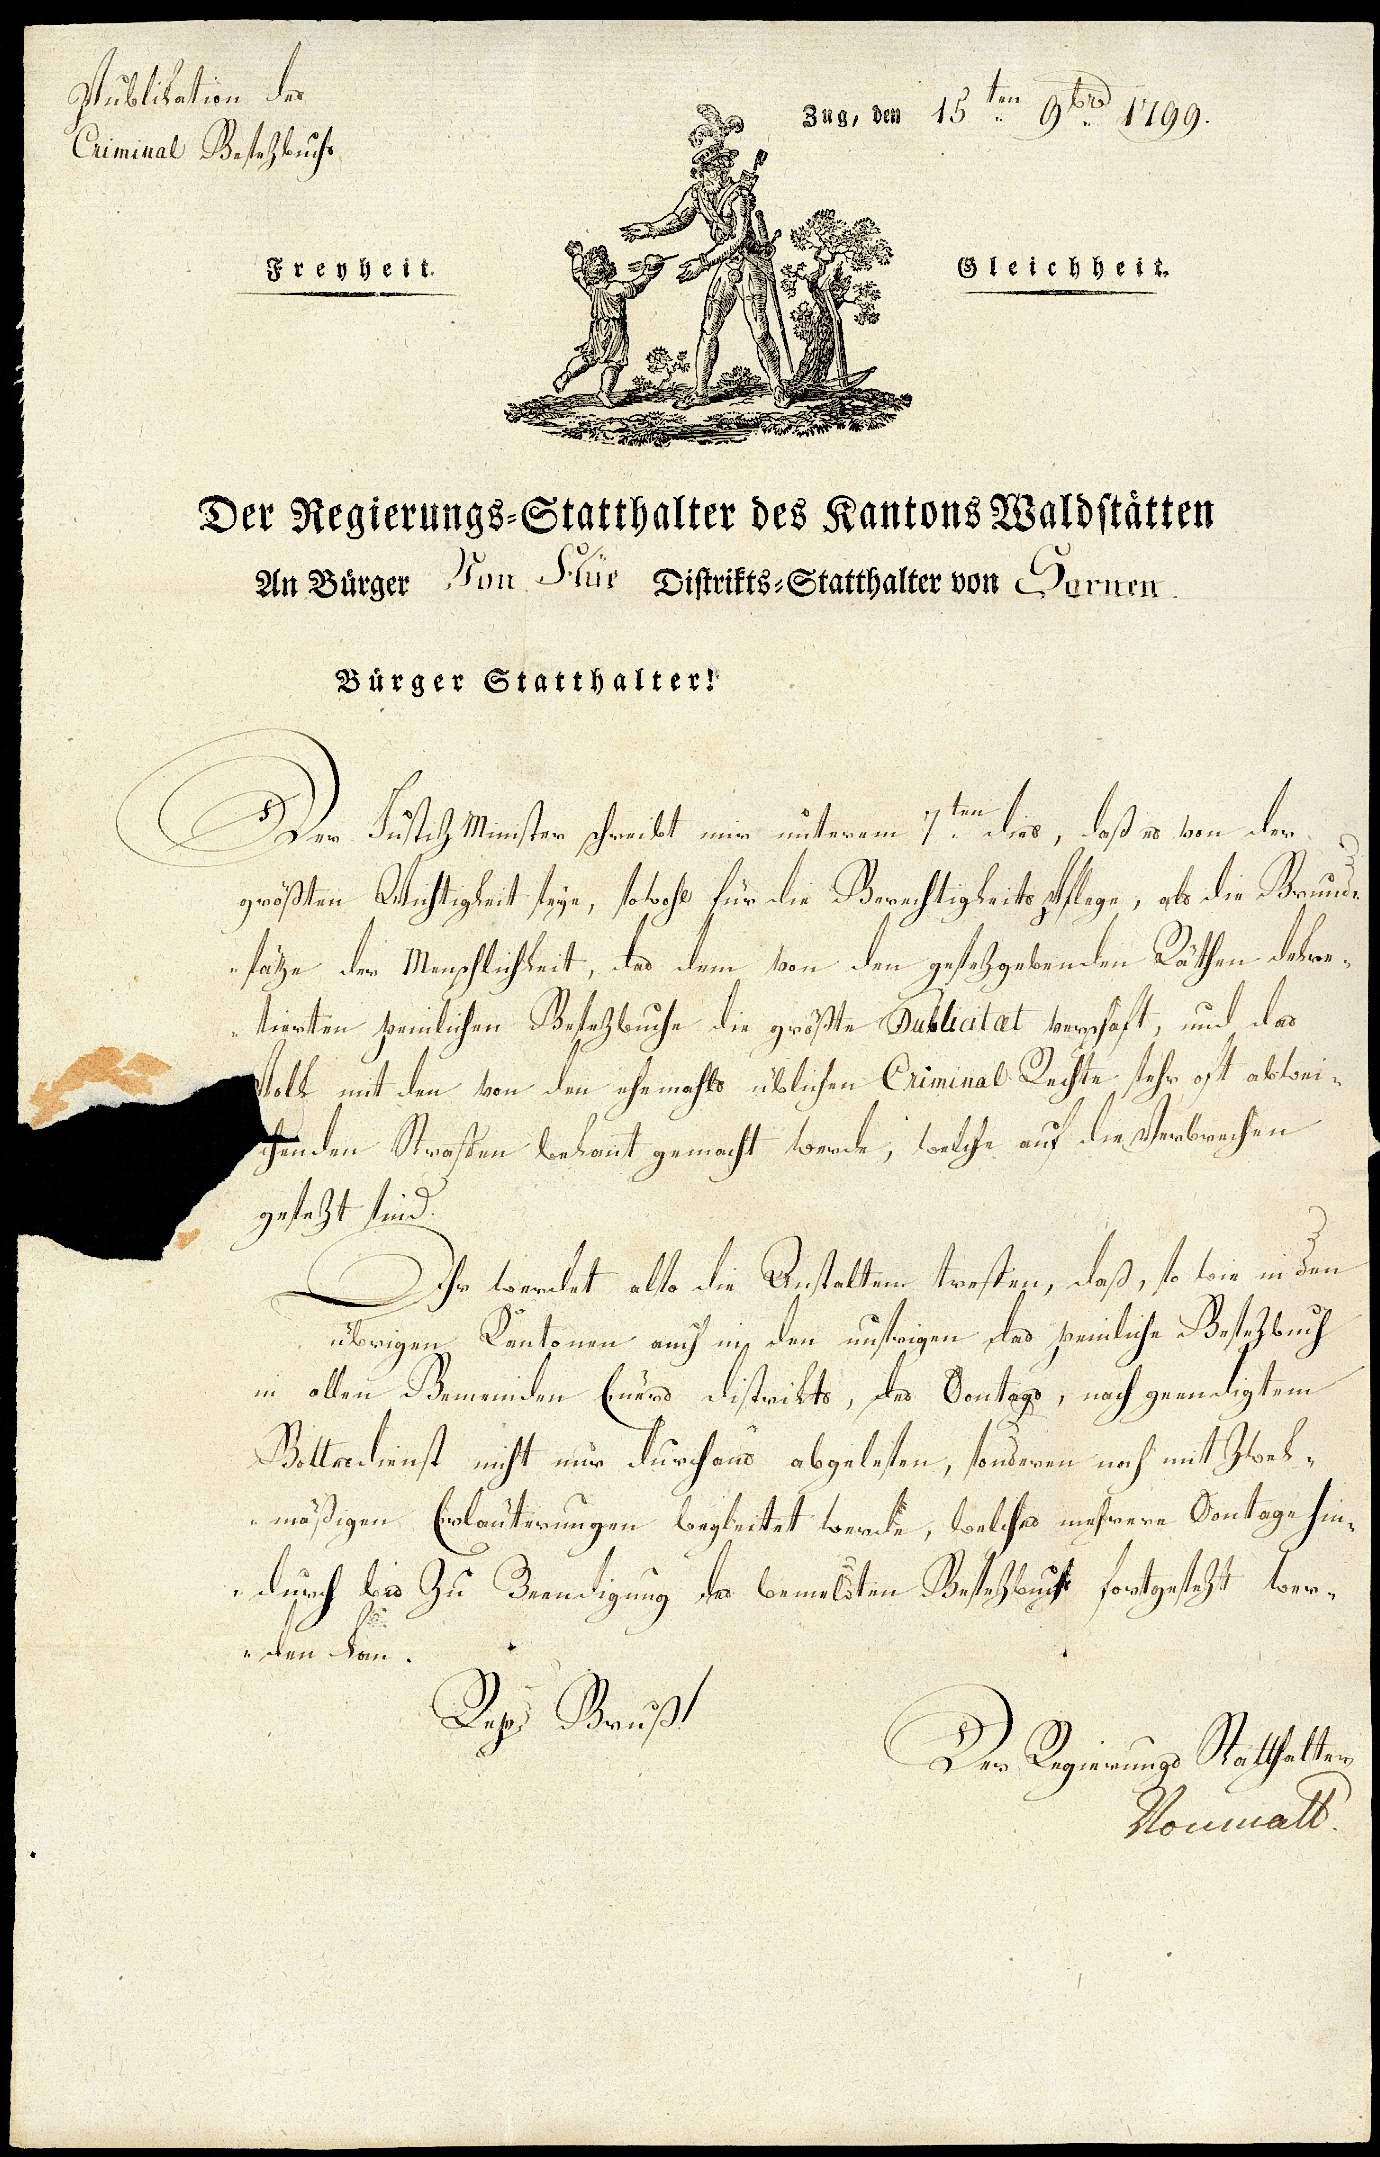 Publikation des
Criminal Gesetzbuchs.
Zug, den 15ten 9bris 1799.
Freyheit.
Gleichheit.
Der Regierungs-Statthalter des Kantons Waldstätten
An Bürger Von Flüe Distrikts-Statthalter von Sarnen.
Bürger Statthalter!
Der Justiz Minister schreibt mir unterem 7ten dies, daß es von der
größten Wichtigkeit seye, sowohl für die Gerechtigkeits Pflege, als die Grund-
-säze der Menschlichkeit, das dem von den gesezgebenden Räthen dekre-
-tierten peinlichen Gesezbuche die größte Publicitæt verschaft, und das
Volk mit den von den ehemahls üblichen Criminal Rechte sehr oft abwei-
chenden Straffen bekant gemacht werde, welche auf die Verbrechen
gesezt sind.
Ihr werdet also die Anstalten treffen, daß, so wie in den
übrigen Kantonen auch in den unsrigen das peinliche Gesezbuch
in allen Gemeinden Euers distrikts, des Sontags, nach geendigtem
Gottesdienst nicht nur durchaus abgelesen, sonderen noch mit Zwek-
-mäßigen Erläuterungen begleitet werde, welches mehrere Sontage hin-
-durch bis Zu Beendigung des bemeldten Gesezbuchs fortgesezt wer-
-den kan.
Repub Gruß!
Der Regierungs Statthalter
Vonmatt.